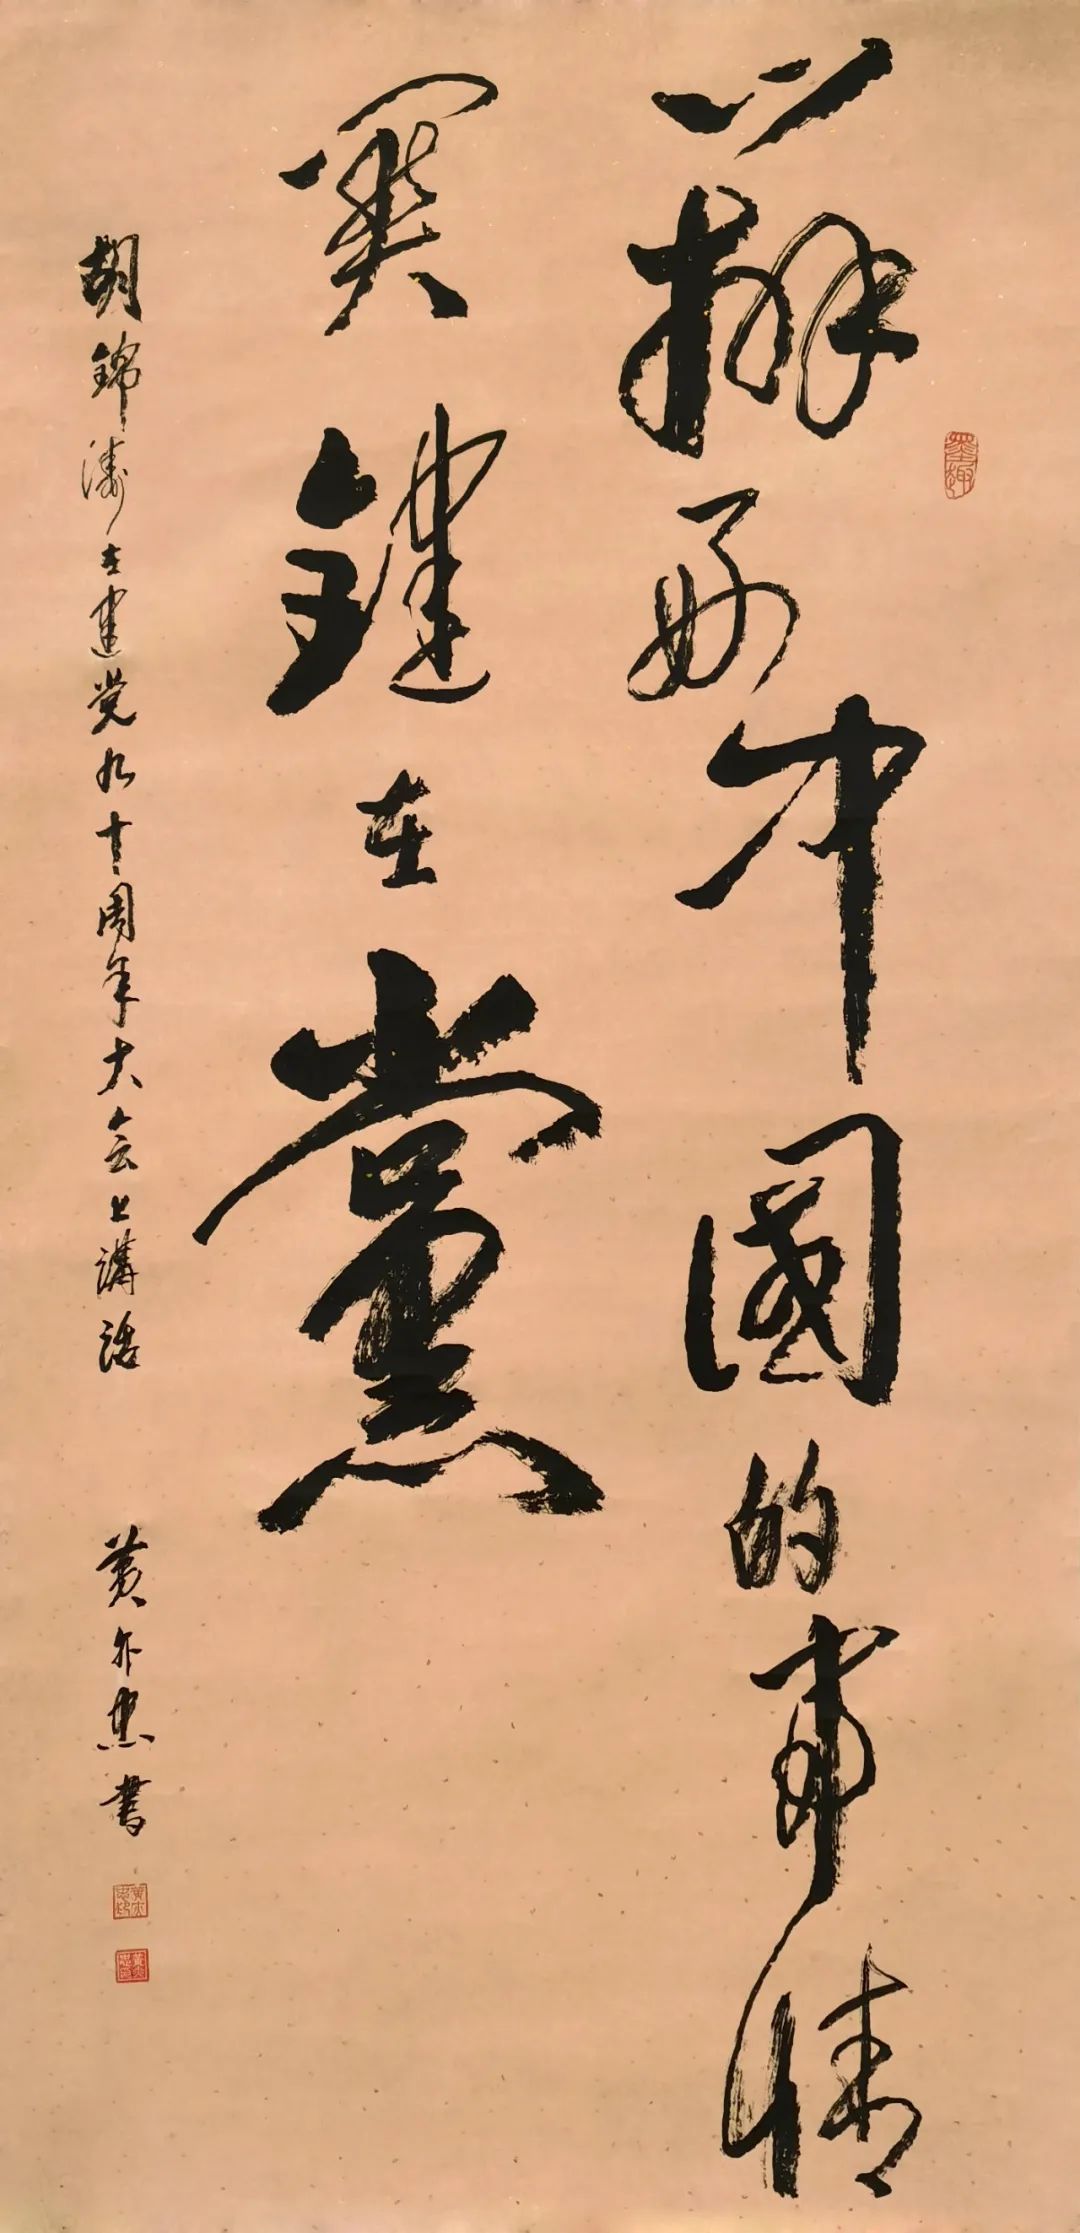 墨趣
辦好中國的事情
關鍵在黨
胡錦濤在建党九十周年大会上講話
黄 忠書